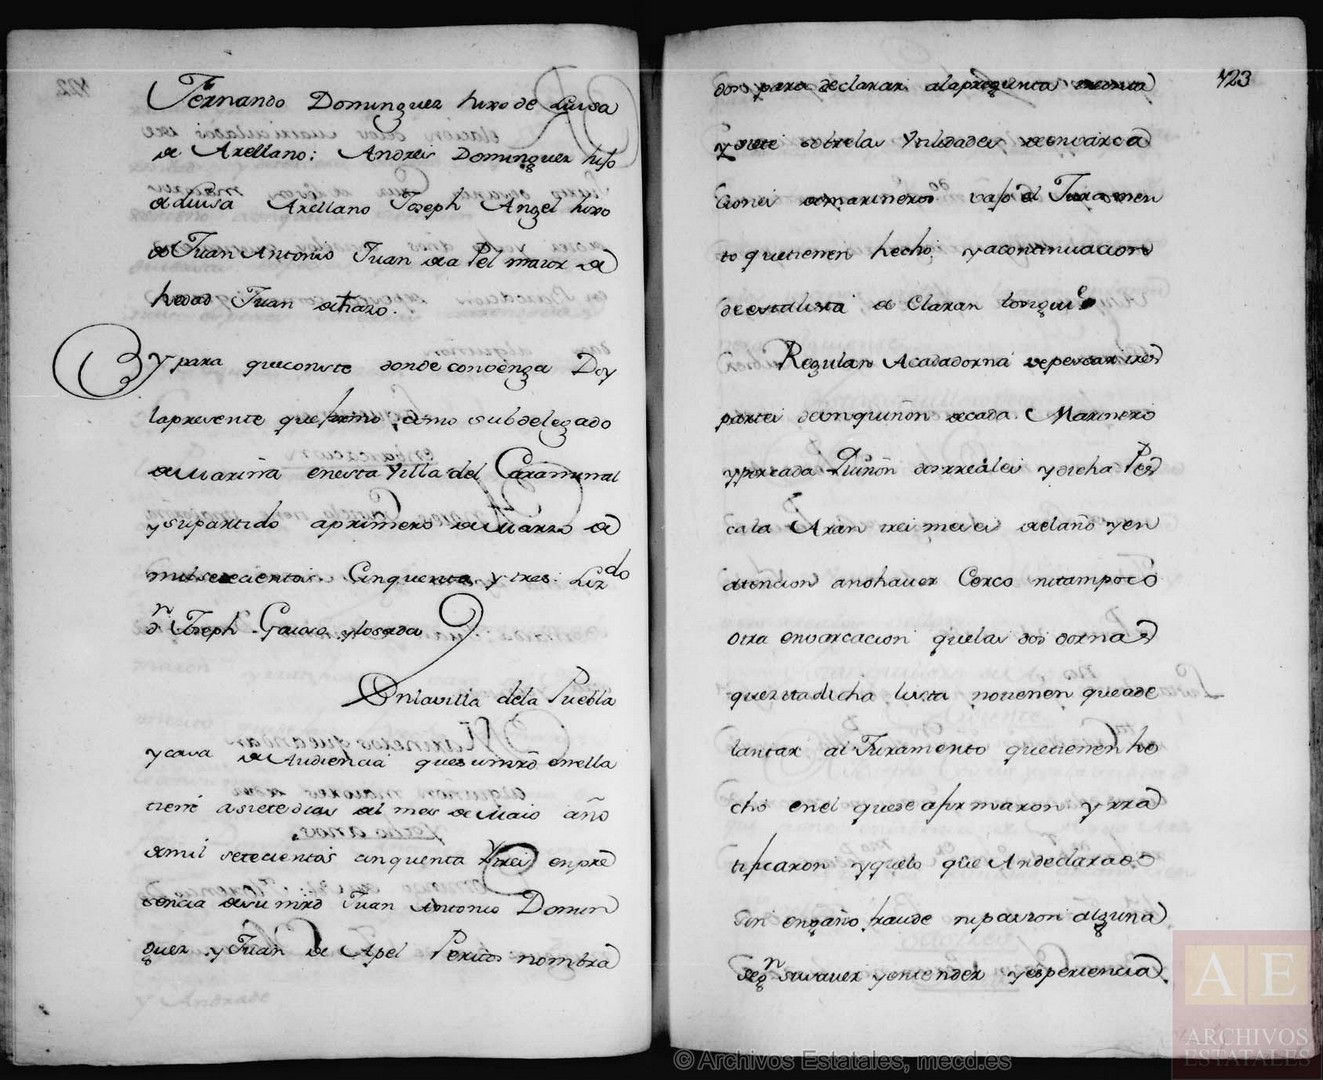 Fernando Dominguez hixo de Luisa
de Arellano: Andres Dominguez hijo
de Luisa Arellano Joseph Angel hixo
de Juan Antonio Juan de a Pel maior de
hedad Juan de hazo.
y para que conste donde convenga Doy
la presente que firmo como subdelegado
de Marina en esta Villa del Caramiñal
y su partido a primero de Marzo de
mil setecientos Cinquenta y tres: Lizdo
dn Joseph Gaioso y losada
En la villa de la Puebla
y casa de Audiencia que su mrd en ella
tiene a siete dias del mes de Maio año
de mil setecientos cinquenta y tres en pre
sencia de su mrd Juan Antonio Domin
guez y Juan de Apel Peritos nombra
423
dos para declarar a la pregunta treinta
y siete sobre las Vtilidades de envarca
ciones de marineros vajo de Juramen
to que tienen hecho y a continuacion
de esta lista de Claran lo sigue
Regulan A cada dorna se pescan tres
partes de un quiñon de cada Marinero
y por cada Quiñon dos rreales y dicha Pes
ca la Aran tres meses del año y en
atencion a no haver Cerco ni tampoco
otra envarcacion que las dos dornas
que zita dicha lista no tienen que ade
lantar al Juramento que tienen he
cho en el que se afirmaron y rra
tificaron y que lo que An declarado
sin engaño fraude ni passion alguna
segn su saver y entender y esperiencia
© Archivos Estatales, mecd.es
AE
ARCHIVOS
ESTATALES